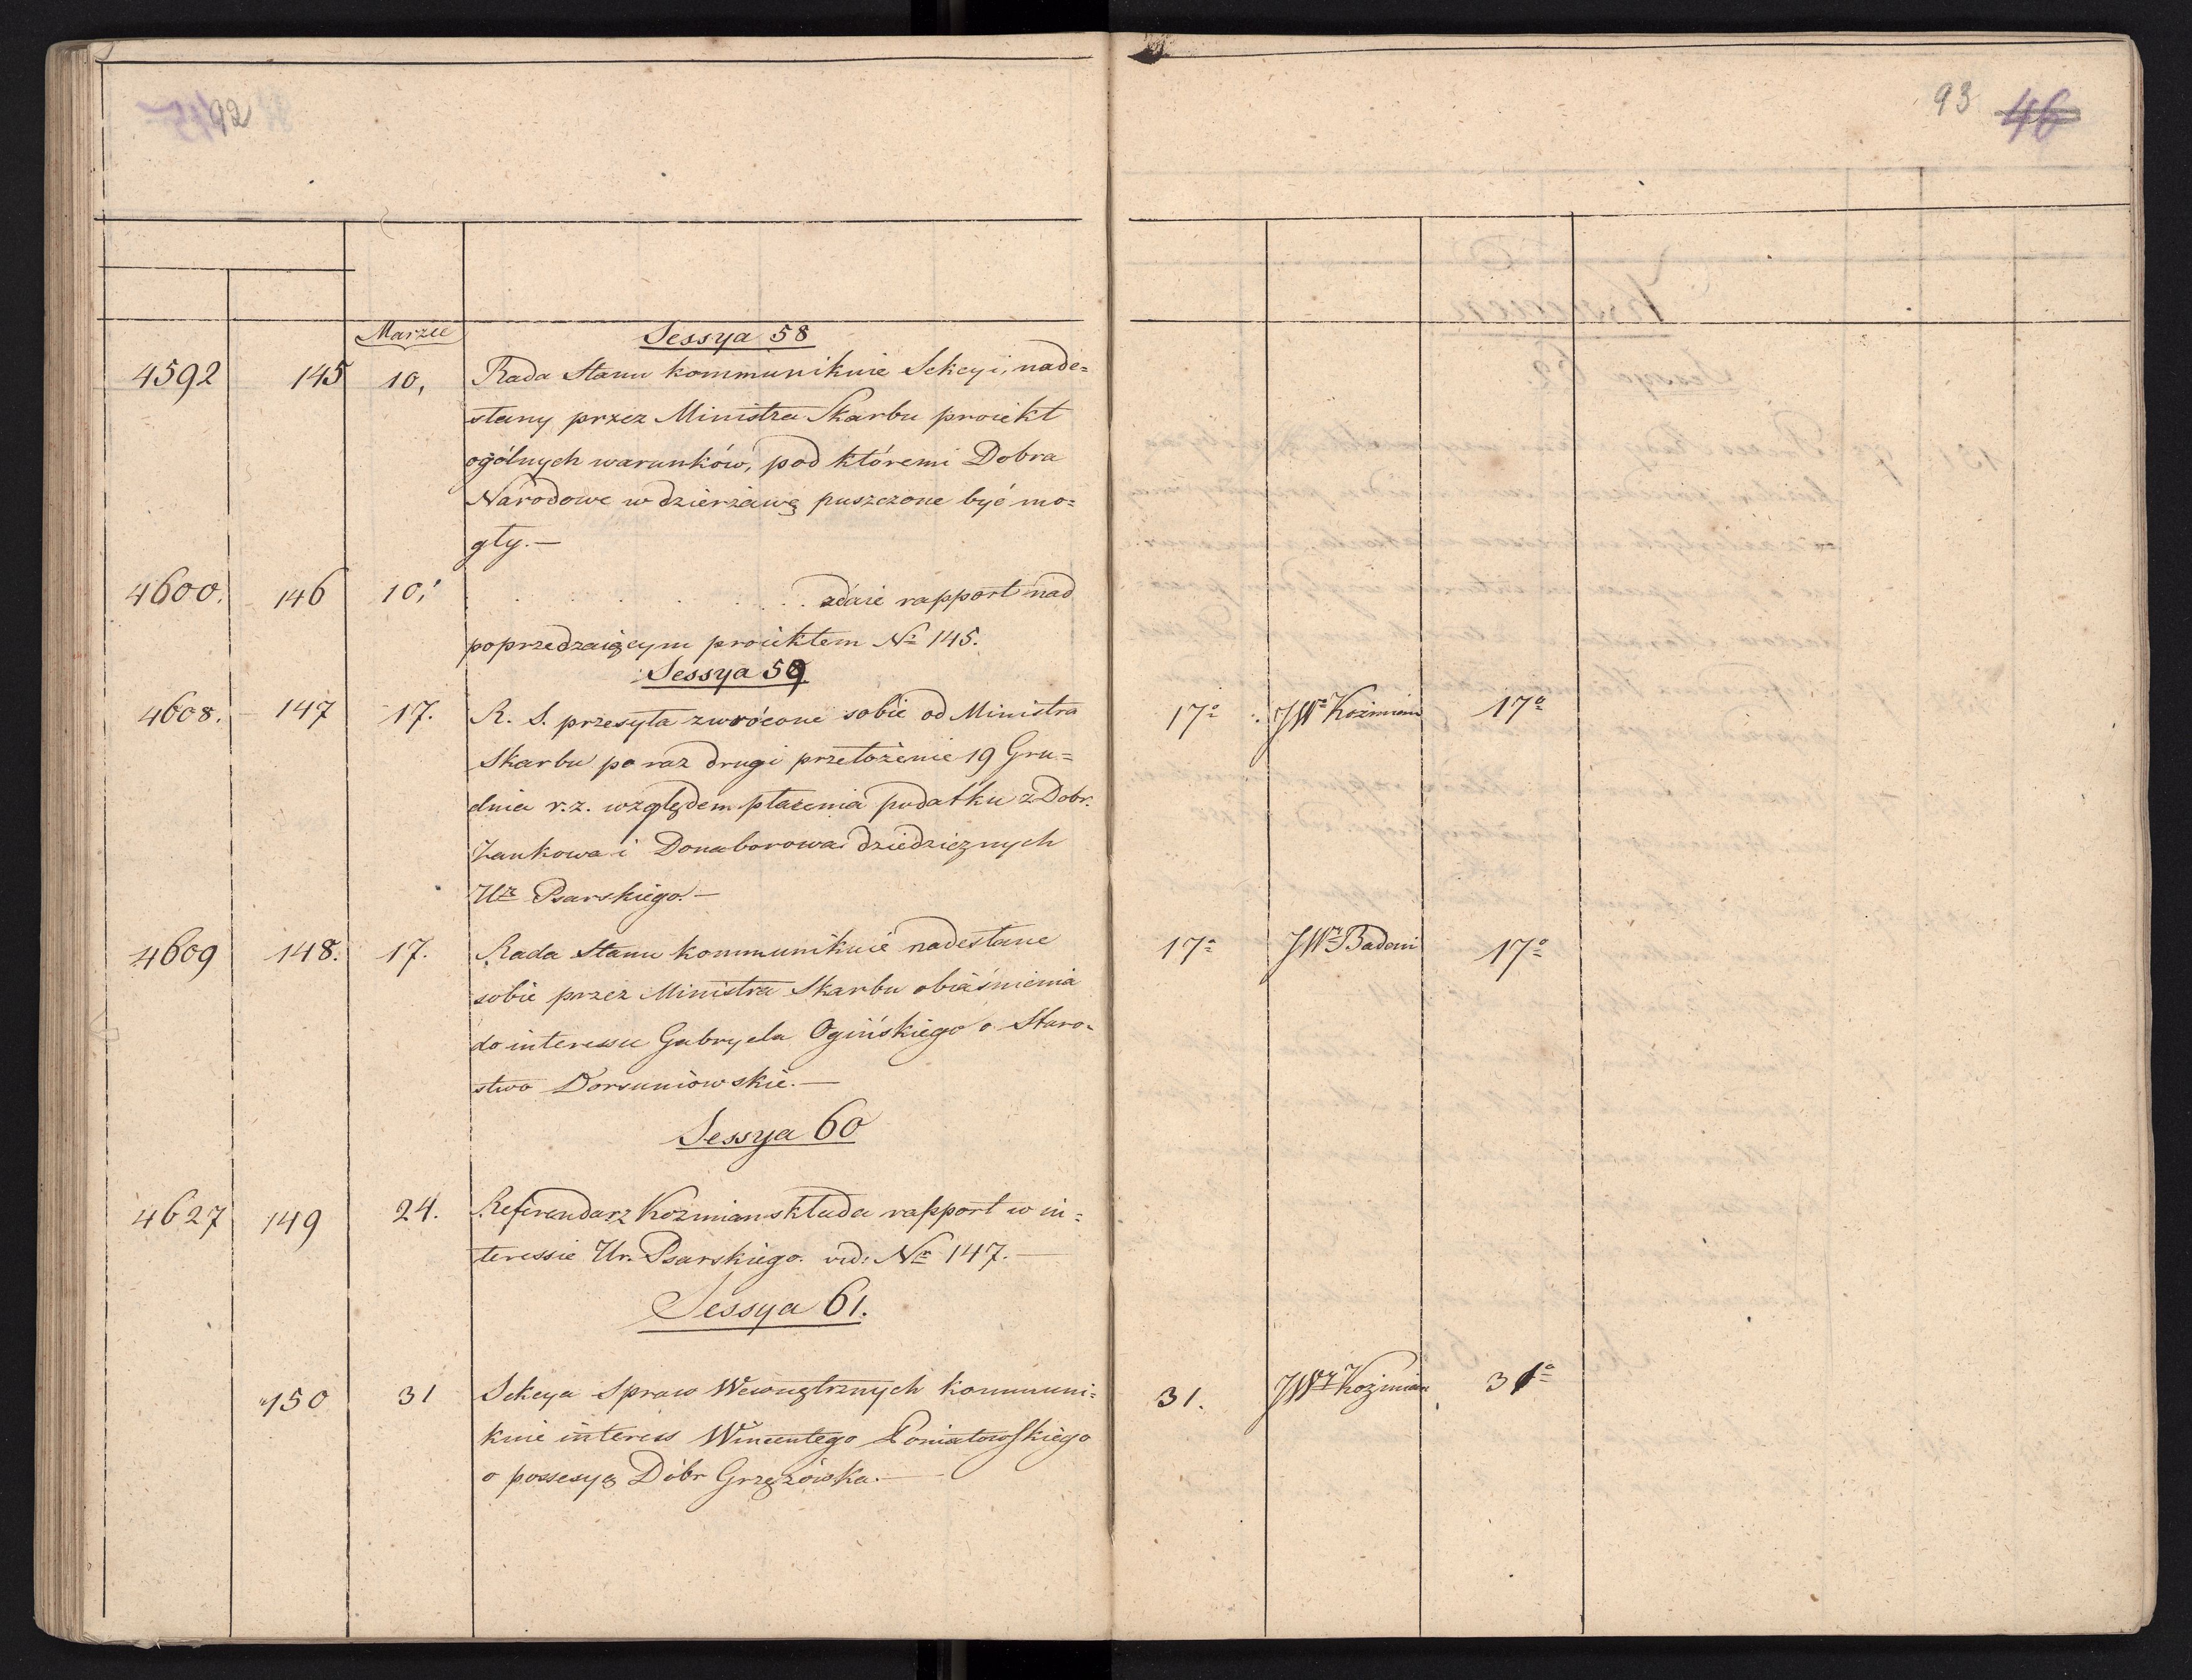 92
93 46
Marzec
Sessya 58
4592 145 10, Rada Stanu kommunikuie Sekcyi, nade=
słany przez Ministra Skarbu proiekt
ogólnych warunków, pod któremi Dobra
Narodowe w dzierżawę puszczone być mo=
gły.—
4600. 146 10, . . . . . . . zdaie rapport nad
poprzedzaiącym proiektem Nr 145.
Sessya 59
4608. 147 17. R. S. przesyła zwrócone sobie od Ministra 17a JWr Koźmian 17a
Skarbu po raz drugi przełożenie 19 Gru=
dnia r.z. względem płacenia podatku z Dobr.
Jankowa i Donaborowa dziedzicznych
Ur Psarskiego.—
4609 148. 17. Rada Stanu kommunikuie nadesłane 17a JWr Badeni 17a
sobie przez Ministra Skarbu obiaśnienia
do interessu Gabryela Ogińskiego o Staro=
stwo Dorsuniowskie.—
Sessya 60
4627 149 24. Referendarz Koźmian składa rapport w in=
teressie Ur. Psarskiego. vid: Nr 147.—
Sessya 61.
150 31 Sekcya Spraw Wewnętrznych kommuni= 31. JWr Koźmian 31a
kuie interess Wincentego Poniatowskiego
o possesyą Dóbr Grzęzówka.—